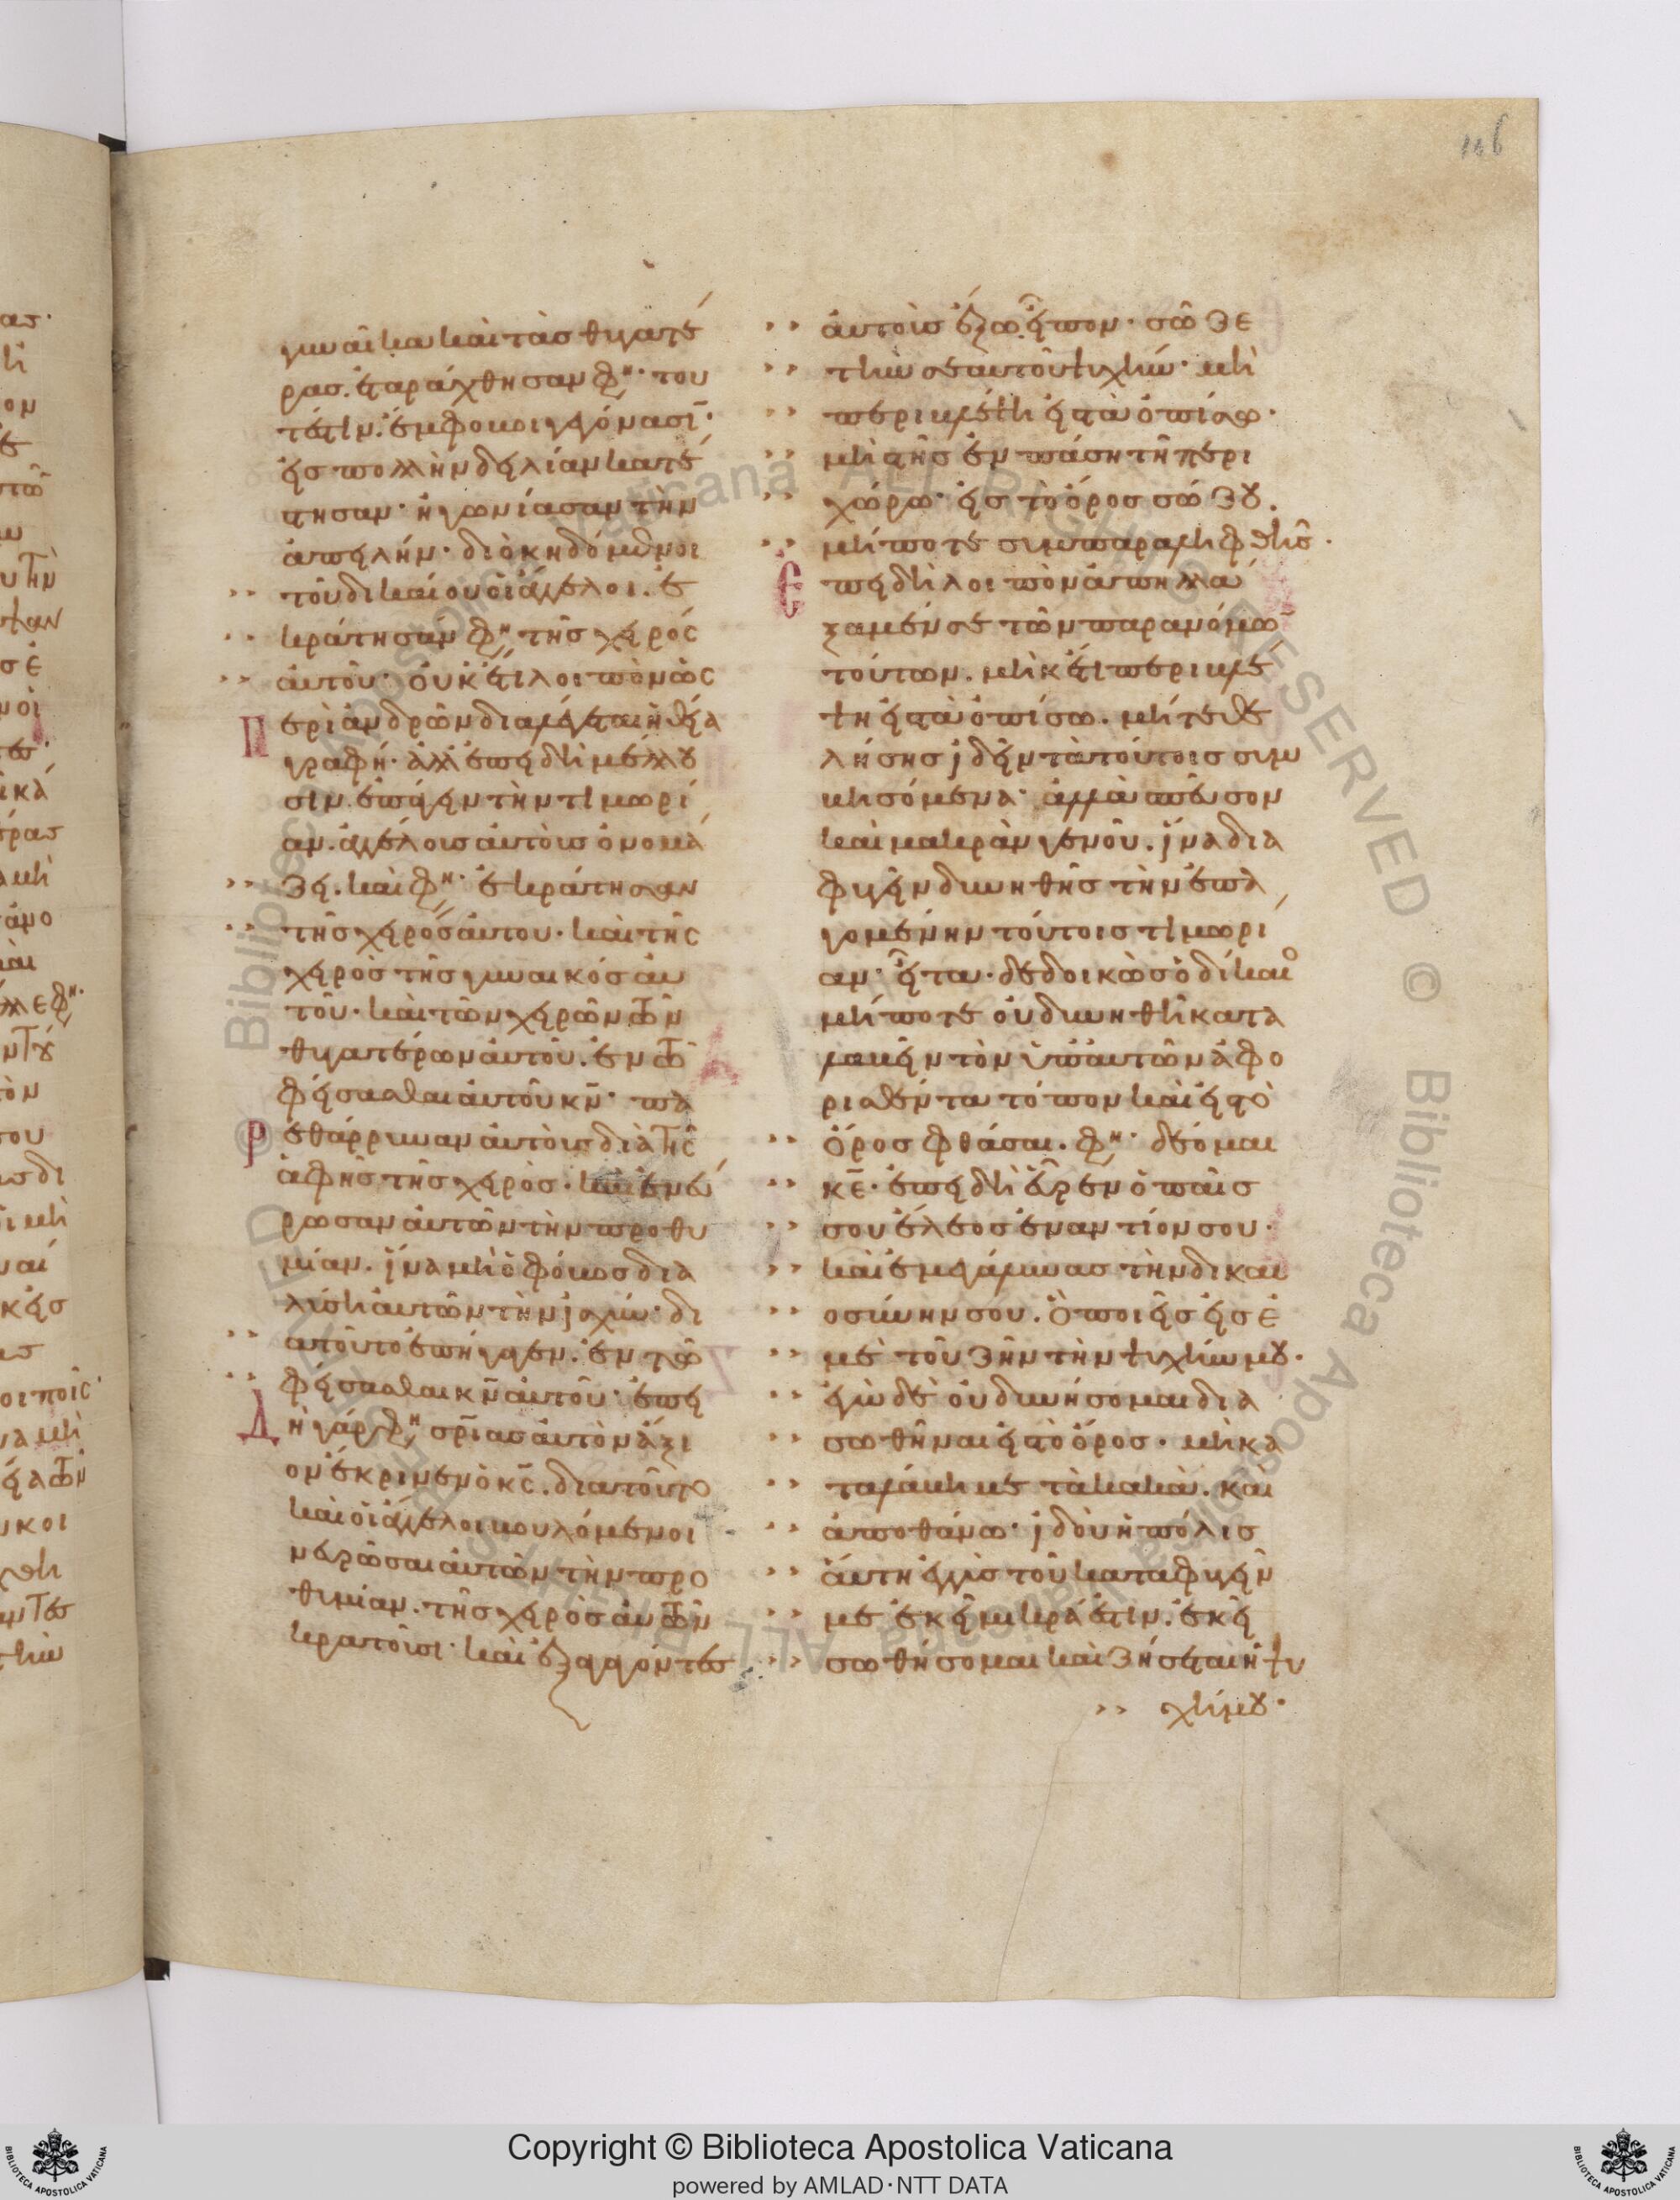 116
γυναῖκα καὶ τὰς θυγατέ
ρας. ἐταράχθησαν φη· του
τέστιν. ἔμφοβοι γεγόνασῑ·
εἰς πολλὴν δειλίαν κατέ
στησαν· ἠγωνίασαν τὴν
ἀπειλήν· διὸ κηδόμενοι
τοῦ δικαίου οἱ ἄγγελοι. ἐ
κράτησάν φη τῆς χειρός
αὐτοῦ· οὐκέτι λοιπὸν ὡς
Περὶ ἀνδρῶν διαλέγεται ἡ θεία
γραφή· ἀλλ' ἐπειδὴ μέλλου
σιν ἐπάγειν τὴν τιμωρί
αν. ἀγγέλους αὐτοὺς ὀνομά
ζει. καὶ φη· ἐκράτησαν
τῆς χειρὸς αὐτου. καὶ τῆς
χειρὸς τῆς γυναικὸς αὐ
τοῦ. καὶ τῶν χειρῶν τῶν
θυγατέρων αὐτοῦ. ἐν τῶ
φείσασθαι αὐτοῦ κν̄· πα
Ρεθάρρυναν αὐτοὺς διὰ τῆς
ἁφῆς τῆς χειρός. καὶ ἐνεύ
ρωσαν αὐτῶν τὴν προθυ
μίαν. ἵνα μὴ ὁ φόβος δια
λύση αὐτῶν τὴν ἰσχύν· δι
ατοῦτο ἐπήγαγεν. ἐν τῶ
φείσασθαι κν̄ αὐτοῦ· ἐπει
Δὴ γάρ φη σρ̄ίας αὐτὸν ἄξι
ον ἔκρινεν ὁ κς̄. διατοῦτο
καὶ οἱ ἄγγελοι βουλόμενοι
νευρῶσαι αὐτῶν τὴν προ
θυμίαν. τῆς χειρὸς αὐτῶν
κρατοῦσι· καὶ ἐξαγαγόντες
αὐτοὺς ἔξω εἶπον· σῶζε
τὴν σεαυτοῦ ψυχήν· μὴ
περιβλέψη εἰς τὰ ὀπίσω·
μὴ δὲ στῆς ἐν πάση τῆ περι
χώρω· εἰς τὸ ὄρος σώζου.
μήποτε συμπαραληφθῆς.
Ἐπειδὴ λοιπὸν ἀπηλλά
ξαμέν σε τῶν παρανόμω̄
τούτων. μὴκέτι περιβλέ
ψη εἰς τὰ ὀπίσω. μήτε θε
λήσης ἰδεῖν τὰ τούτοις συμ
βησόμενα· ἀλλὰ σπεῦσον
καὶ μακρὰν γενοῦ. ἵνα δια
φυγεῖν δυνηθῆς τὴν ἐπα
γομένην τούτοις τιμωρί
αν· εἶτα. δεδοικὼς ὁ δίκαιο
μήποτε οὐ δυνηθῆ κατα
λαβεῖν τὸν ὑπ' αὐτῶν ἀφο
ρισθέντα τόπον καὶ εἰς τὸ
ὄρος φθάσαι. φη· δέομαι
κε̄· ἐπειδὴ εὗρεν ὁ παῖς
σου ἔλεος ἐναντίον σου·
καὶ ἐμεγάλυνας τὴν δικαι
οσύνην σου. ὃ ποιεῖς εἰς ἐ
μὲ τοῦ ζῆν τὴν ψυχήν μου·
ἐγὼ δὲ οὐ δυνήσομαι δια
σωθῆναι εἰς τὸ ὄρος. μὴ κα
ταλάβη με τὰ κακὰ. καὶ
ἀποθάνω· ἰδοὺ ἡ πόλις
αὕτη ἐγγὺς τοῦ καταφυγεῖν
με ἐκεῖ μικρά ἐστιν. ἐκεῖ
σωθήσομαι καὶ ζήσεται ἡ ψυ
χή μου·
Copyright © Biblioteca Apostolica Vaticana
powered by AMLAD·NTT DATA